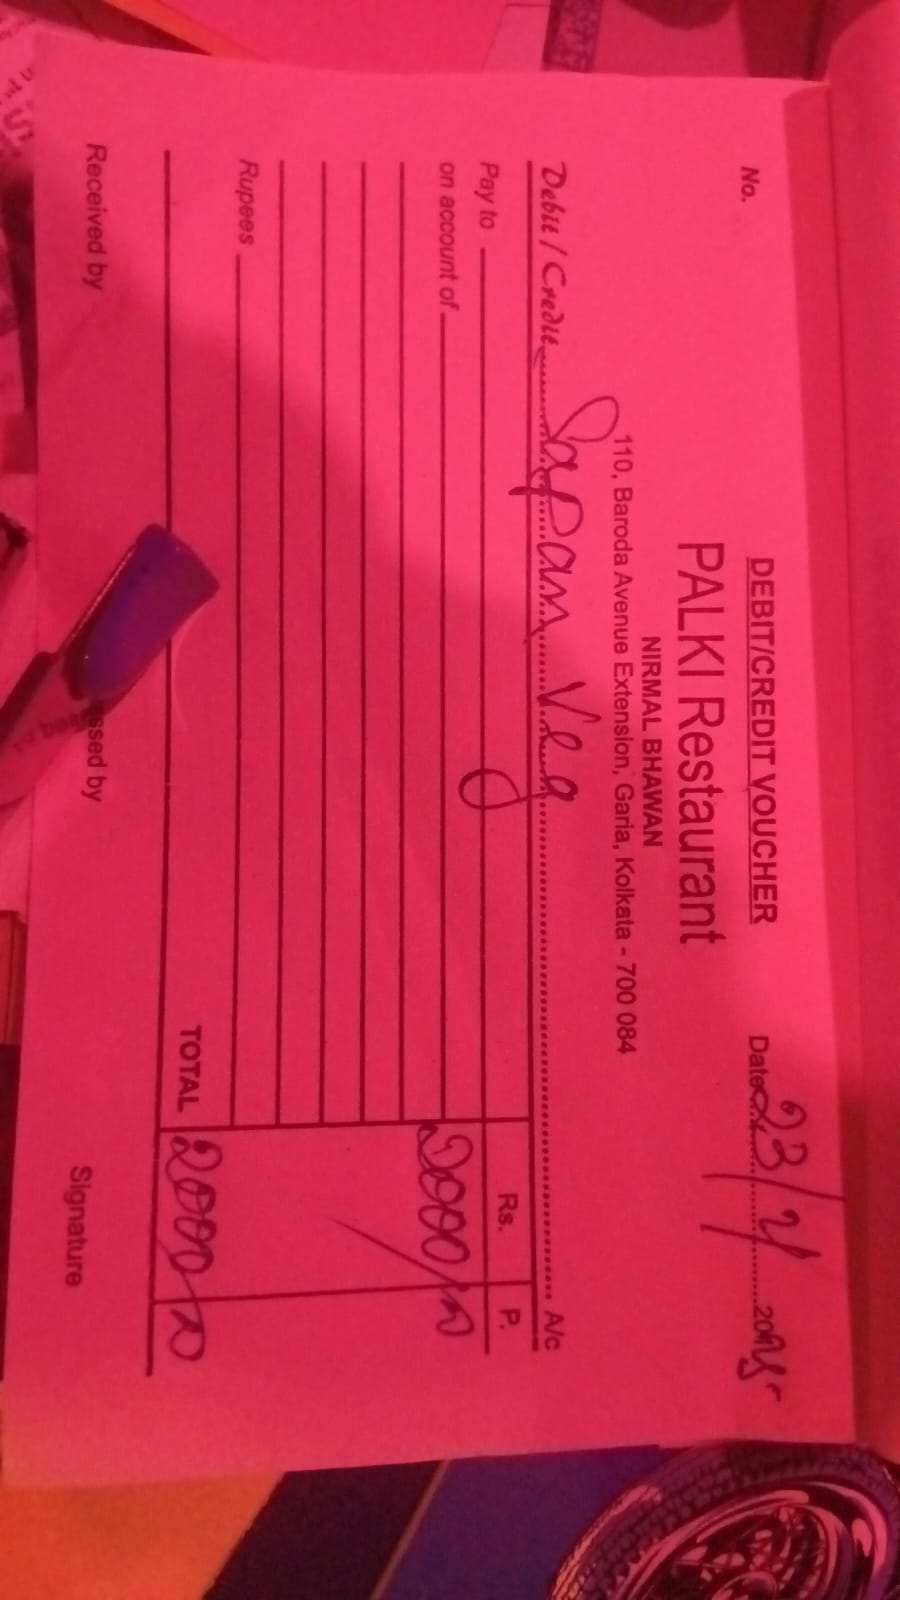 DEBIT/CREDIT VOUCHER
No. Date 23/4/20
PALKI Restaurant
NIRMAL BHAWAN
110, Baroda Avenue Extension, Garia, Kolkata - 700 084
Debit / Credit Sapan Veg A/c
Pay to Rs. P.
on account of 2000/-
Rupees
TOTAL 2000/-
Received by ssed by Signature